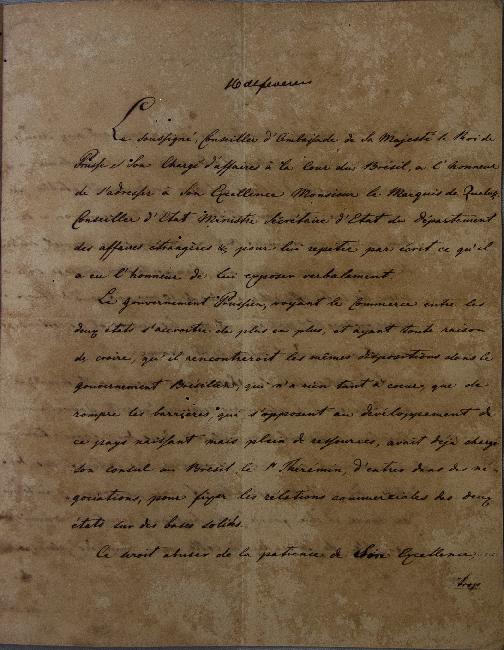 16 de fevereiro
Le soussigné, Conseiller d'Ambassade de Sa Majesté le Roi de
Prusse et Son Chargé d'affaires à la Cour du Brésil, a l'honneur
de s'adresser à Son Excellence Monsieur le Marquis de Queluz
Conseiller d'Etat Ministre Secrétaire d'Etat du département
des affaires étrangères &, pour lui repeter par écrit ce qu'il
a eu l'honneur de lui exposer verbalement.
Le gouvernement Prussien, voyant le Commerce entre les
deux états s'accroitre de plus en plus, et ayant toute raison
de croire, qu'il rencontreroit les mêmes dispositions dans le
gouvernement Brésilien, qui n'a rien tant à coeur, que de
rompre les barrières qui s'opposent au développement de
ce pays naissant mais plein de ressources, avait déjà chargé
son consul au Brésil, le Sr Theremin, d'entrer dans des né-
gociations, pour fixer les relations commerciales des deux
états sur des bases solides.
Ce seroit abuser de la patience de Son Excellence,
trop